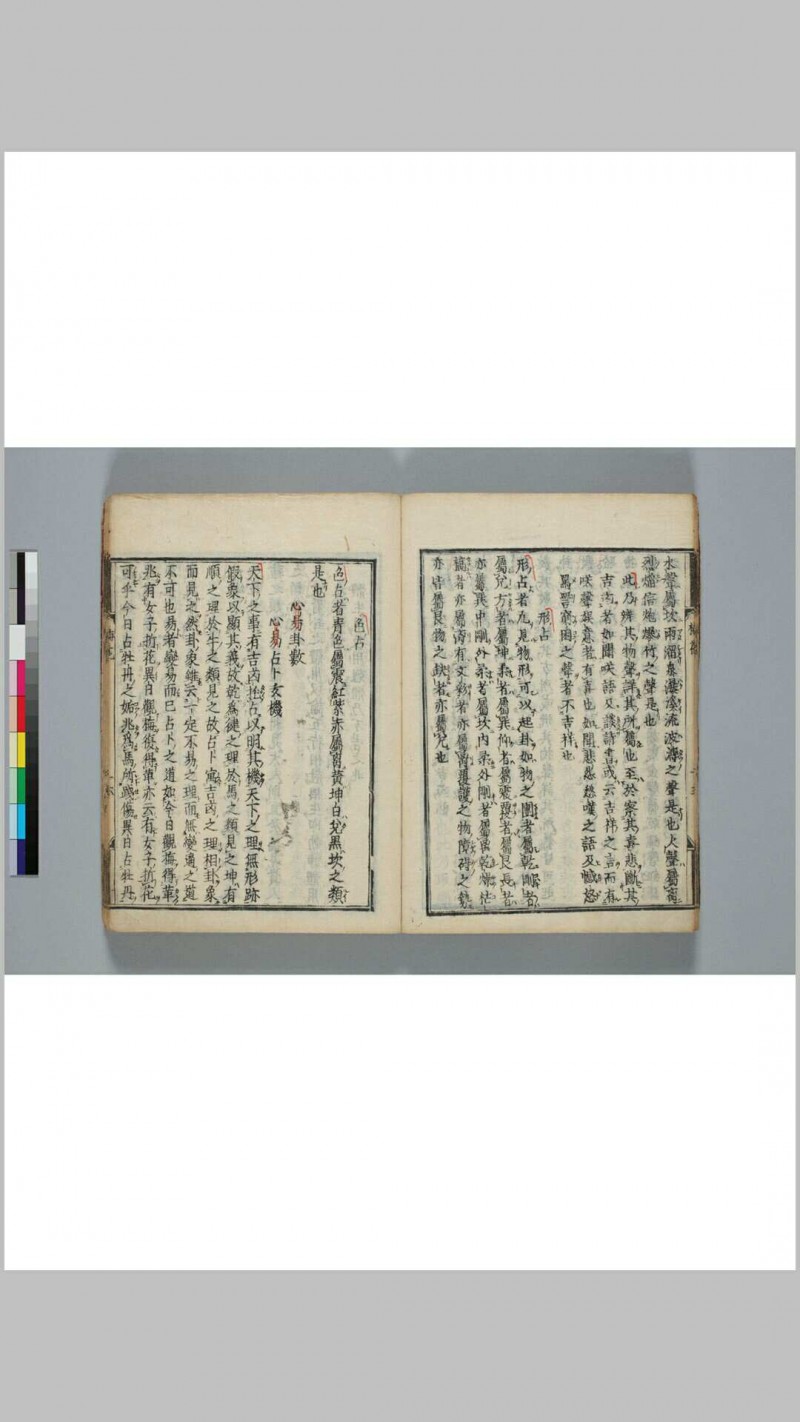 水聲屬坎雨澑泉灘溪流波濤之聲是也火聲屬离
烈爐倍炮爆竹之聲是也
此乃辨其物聲詳其所屬也至於察其喜悲斷其
吉凶若如聞咲語又談請書或云吉祥之言而有
咲聲娯意者有喜也如聞悲愁愁嘆之語及憾怒
罵詈窮困之聲者不吉祥也
形占
形占者凡見物形可以起卦如物之圍者屬乾剛者
屬兌方者屬坤柔者屬巽仰者屬震長者
亦屬巽中剛外柔者屬坎内柔外剛者屬离乾燥枯
槁者亦屬离有文彩者亦屬离遮護之物障碍之勢
亦皆屬艮物之缺者亦屬兌也
色占
色占者青色屬震紅紫赤屬离黄坤白兌黒坎之類
是也
心易卦數
心易占卜玄機
天下之事有吉凶托占以明其機天下之理無形跡
假象以顯其義故乾為健之理於馬之類見之坤有
順之理於牛之類見之故占卜寓吉凶之理相卦象
而見之然卦象雖云一定不易之理而無變通之道
不可也易者變易而已占卜之道如今日觀梅得革
兆有女子折花異日觀梅復得革亦云有女子折花
可乎今日占牡丹之姤兆爲馬所踐傷異日占牡丹